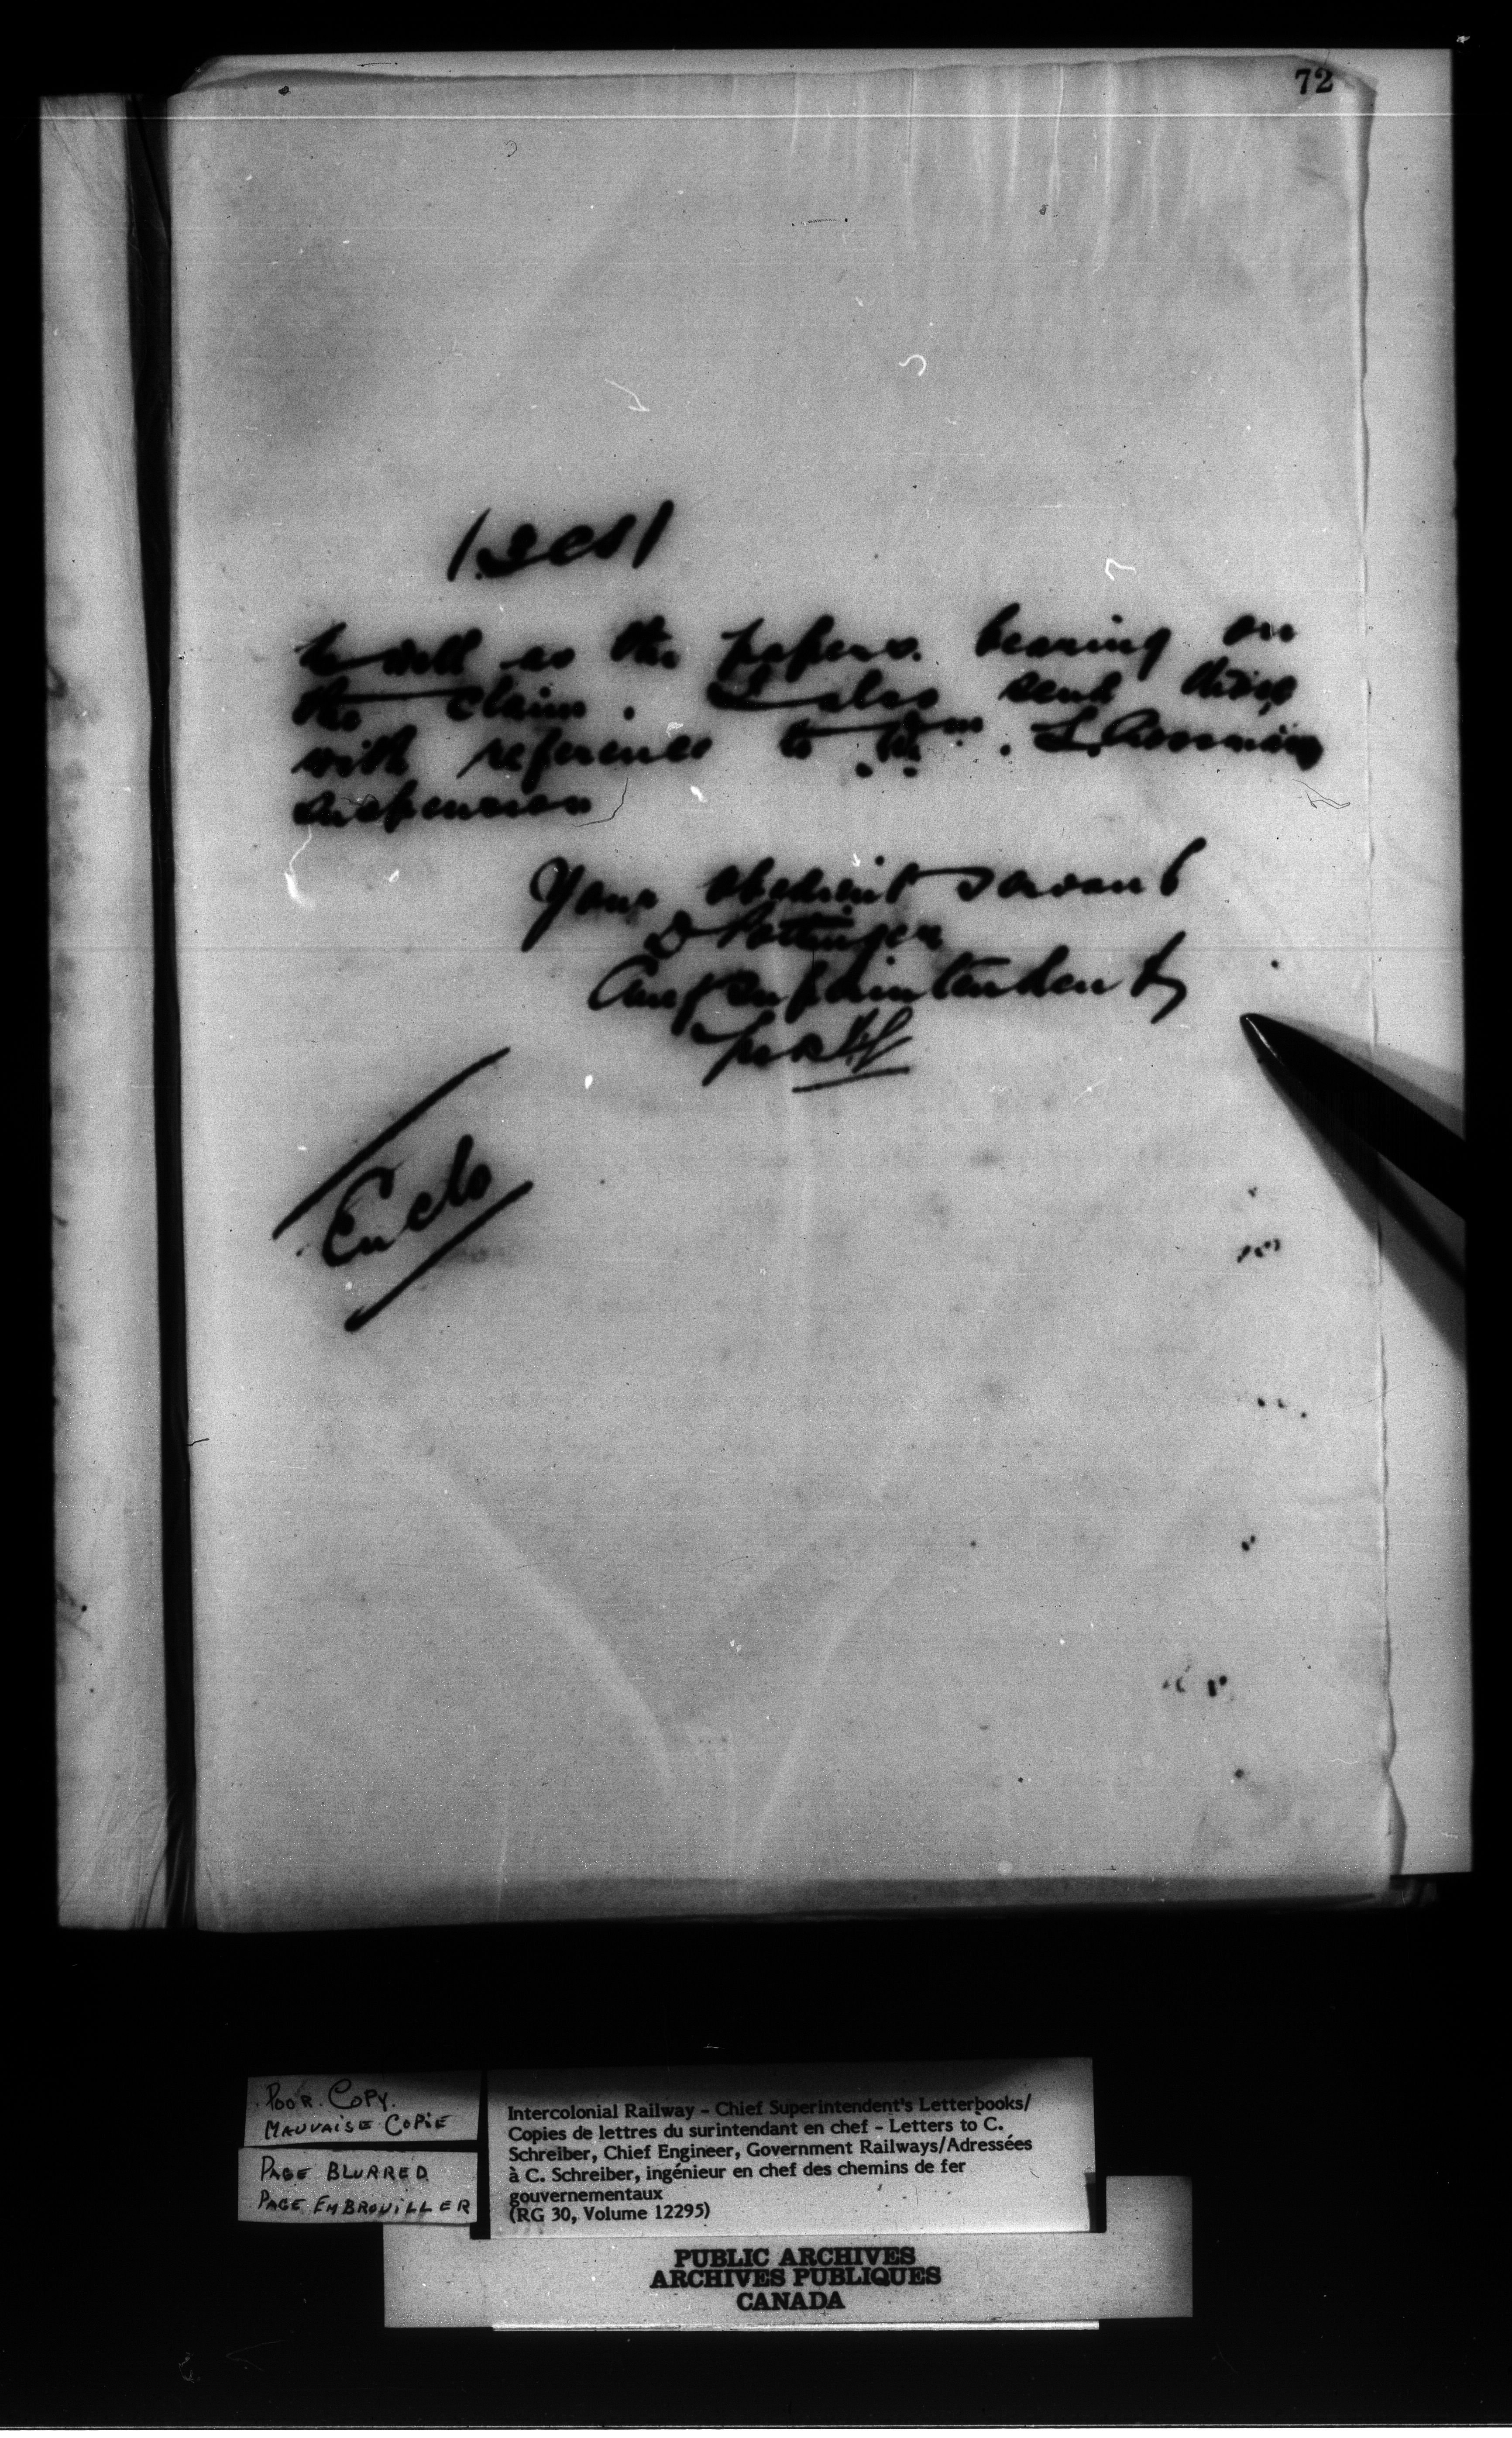 72
as well as the papers bearing on
the claim. I also send those
with reference to Wm.
suspension
Your obedient servant
D Pottinger
Superintendent
per
Enclo
POOR COPY.
MAUVAISE COPIE
PAGE BLURRED
PAGE EMBROUILLER
Intercolonial Railway - Chief Superintendent's Letterbooks/
Copies de lettres du surintendant en chef - Letters to C.
Schreiber, Chief Engineer, Government Railways/Adressées
à C. Schreiber, ingénieur en chef des chemins de fer
gouvernementaux
(RG 30, Volume 12295)
PUBLIC ARCHIVES
ARCHIVES PUBLIQUES
CANADA